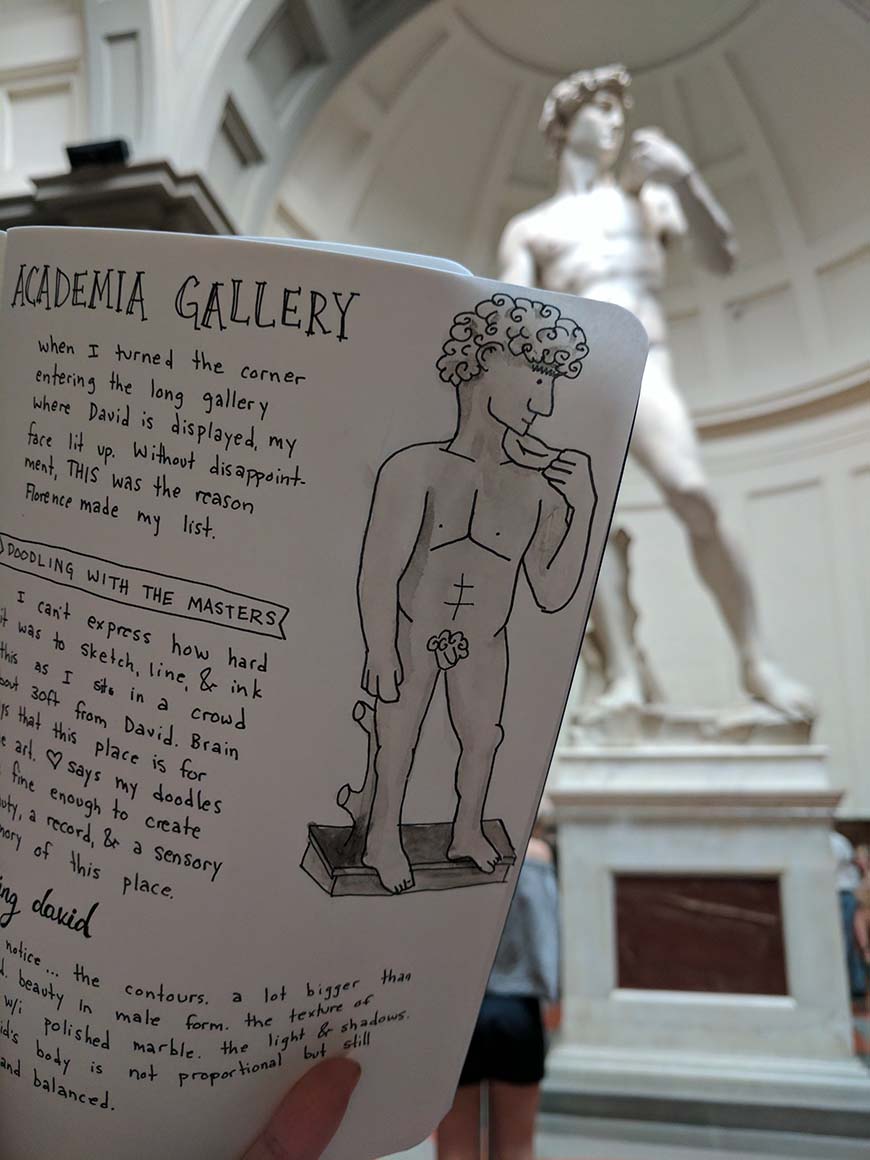 ACADEMIA GALLERY
when I turned the corner
entering the long gallery
where David is displayed, my
face lit up. Without disappoint-
ment, THIS was the reason
Florence made my list.
DOODLING WITH THE MASTERS
I can't express how hard
it was to sketch, line, & ink
this as I sit in a crowd
bout 30ft from David. Brain
ys that this place is for
e art. ♡ says my doodles
fine enough to create
uty, a record, & a sensory
mory of this place.
ing david
notice... the contours. a lot bigger than
d. beauty in male form. the texture of
w/i polished marble. the light & shadows.
id's body is not proportional but still
and balanced.